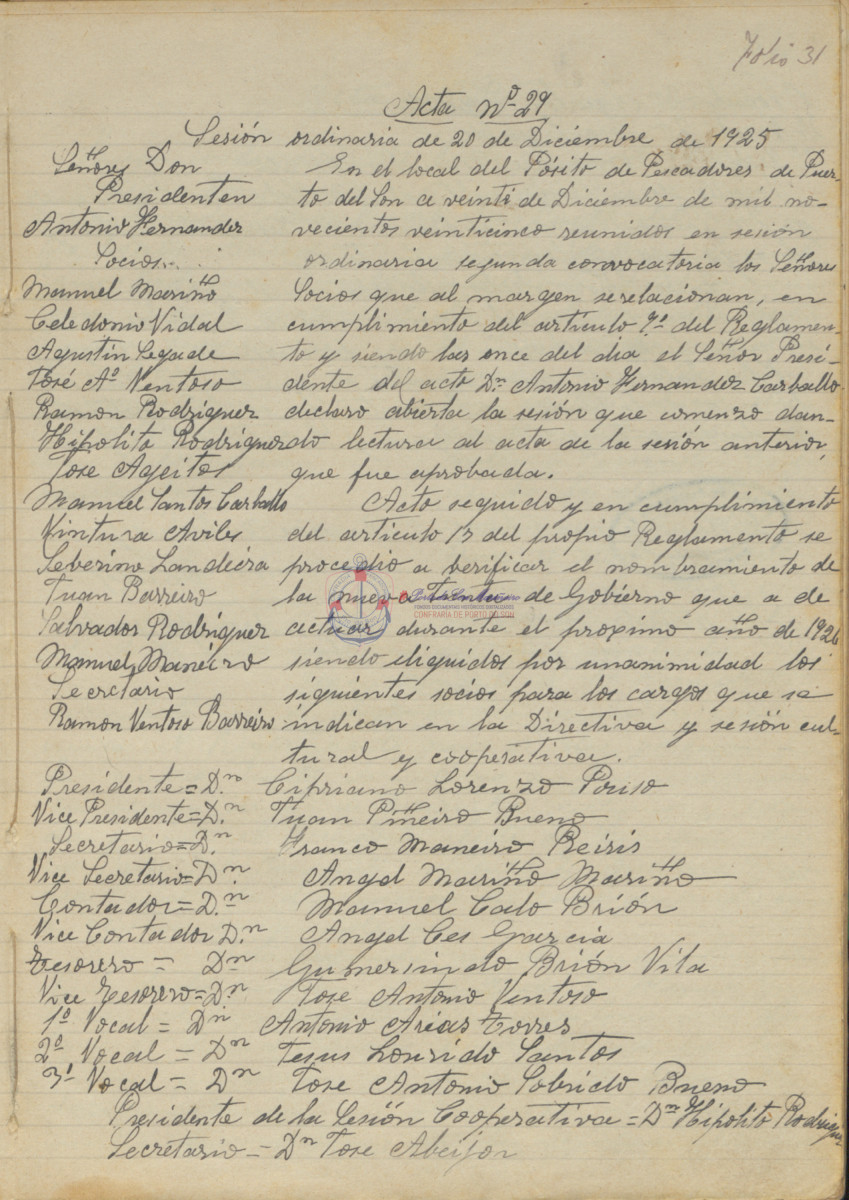 Folio 31
Acta Nº 29
Sesión ordinaria de 20 de Diciembre de 1925
Señores Don
Presidenten
Antonio Hernandez
Socios.
Manuel Mariño
Celedonio Vidal
Agustin Segade
José Aº Ventoso
Ramon Rodriguez
Hipolito Rodriguez
Jose Ageitos
Manuel Santos Carballo
Vintura Aviles
Seberino Landeira
Juan Barreiro
Salvador Rodriguez
Manuel Maneiro
Secretario
Ramon Ventoso Barreiro
En el local del Pósito de Pescadores de Puer-
to del Son a veinti de Diciembre de mil no-
vecientos veinticinco reunidos en sesión
ordinaria segunda convocatoria los Señores
Socios que al margen se relacionan, en
cumplimiento del articulo 9º del Reglamen-
to y siendo las once del dia el Señor Presi-
dente del acto Dn Antonio Hernandez Carballo
declaro abierta la sesión que comenzo dan-
do lectura al acta de la sesión anterior,
que fue aprobada.
Acto seguido y en cumplimiento
del articulo 13 del propio Reglamento se
procedio a verificar el nombramiento de
la nueva Junta de Gobierno que a de
actuar durante el proximo año de 1926
siendo eliguidos por unanimidad los
siguientes socios para los cargos que se
indican en la Directiva y sesión cul-
tural y cooperativa.
Presidente = D.n Cipriano Lorenzo Pouso
Vice Presidente = D.n Juan Piñeiro Bueno
Secretario = D.n Franco Maneiro Reiris
Vice Secretario = D.n Angel Mariño Mariño
Contador = D.n Manuel Calo Brión
Vice Contador D.n Angel Ces Garcia
Tesorero = Dn Gumersindo Brión Vila
Vice Tesorero = D.n Jose Antonio Ventoso
1º Vocal = Dn Antonio Arias Torres
2º Vocal = Dn Jesus Lourido Santos
3º Vocal = Dn Jose Antonio Sobrido Bueno
Presidente de la Sesión Cooperativa = Dn Hipolito Rodriguez
Secretario = Dn Jose Abeijon
CONFRARÍA DE PORTO DO SON